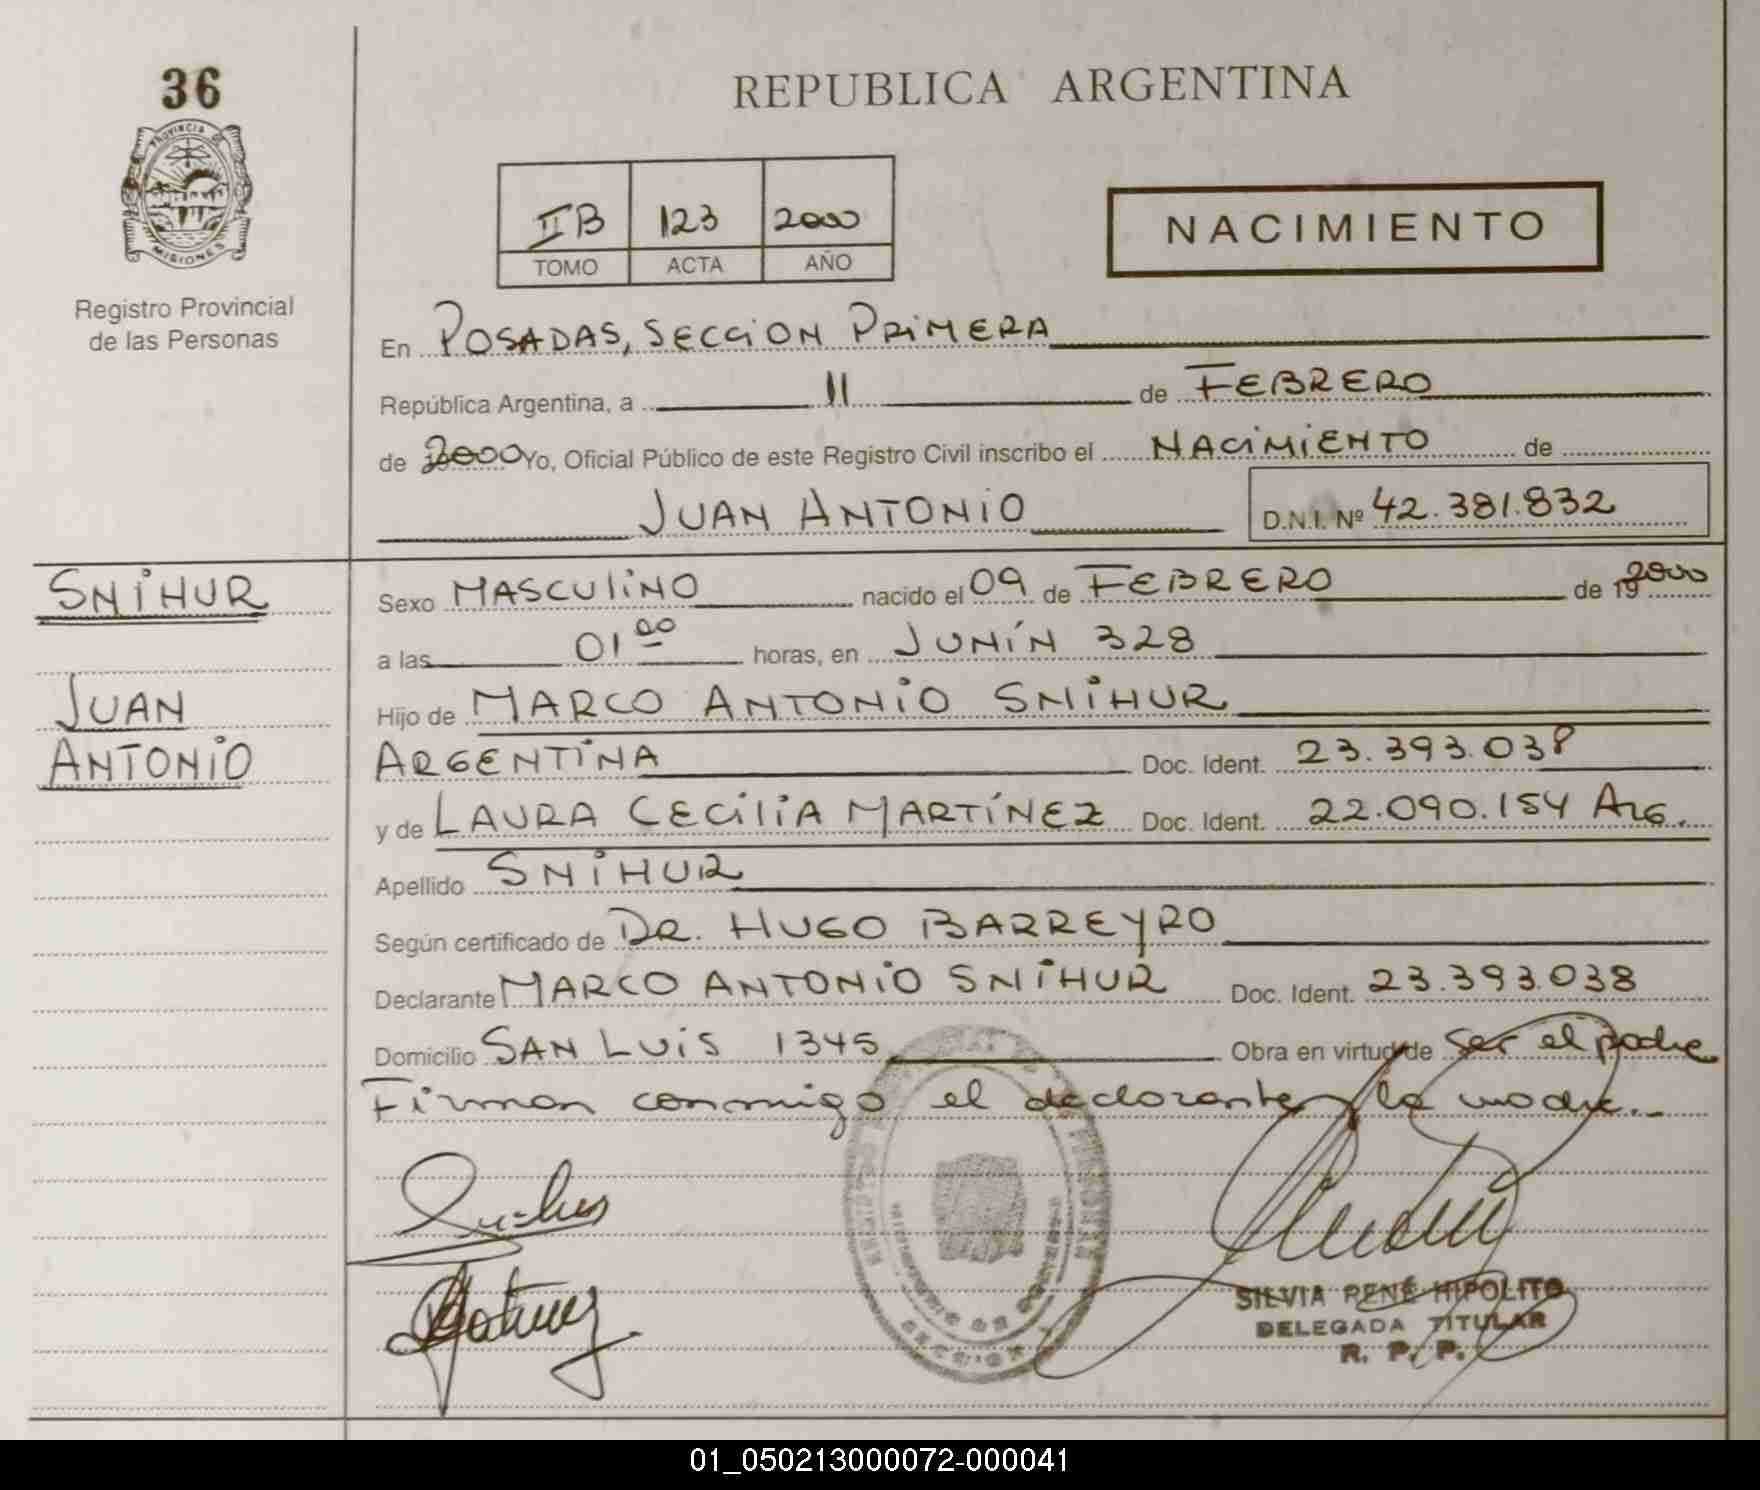 36
PROVINCIA DE
MISIONES
Registro Provincial
de las Personas
REPUBLICA ARGENTINA
II B 123 2000
TOMO ACTA AÑO
NACIMIENTO
En POSADAS, SECCION PRIMERA
República Argentina, a 11 de FEBRERO
de 2000 Yo, Oficial Público de este Registro Civil inscribo el NACIMIENTO de
JUAN ANTONIO D.N.I. Nº 42.381.832
SNIHUR
JUAN
ANTONIO
Sexo MASCULINO nacido el 09 de FEBRERO de 19 2000
a las 01 00 horas, en JUNÍN 328
Hijo de MARCO ANTONIO SNIHUR
ARGENTINA Doc. Ident. 23.393.038
y de LAURA CECILIA MARTÍNEZ Doc. Ident. 22.090.154 ARG.
Apellido SNIHUR
Según certificado de DR. HUGO BARREYRO
Declarante MARCO ANTONIO SNIHUR Doc. Ident. 23.393.038
Domicilio SAN LUIS 1345 Obra en virtud de ser el padre
Firman conmigo el declarante y la madre.
SILVIA RENÉ HIPOLITO
DELEGADA TITULAR
R. P. P.
01_050213000072-000041